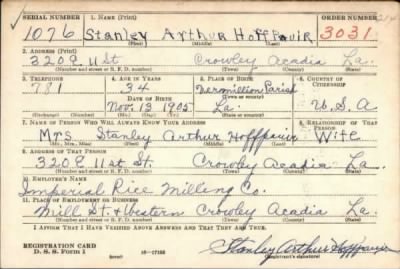 SERIAL NUMBER 1. NAME (Print) ORDER NUMBER
1076 Stanley Arthur Hoffpauir 3031
(First) (Middle) (Last)
2. ADDRESS (Print)
320 E 11 St Crowley Acadia La.
(Number and street or R. F. D. number) (Town) (County) (State)
3. TELEPHONE 4. AGE IN YEARS 5. PLACE OF BIRTH 6. COUNTRY OF CITIZENSHIP
781 34 Vermillion Parish
DATE OF BIRTH (Town or county)
Nov. 13 1905 La. U.S.A
(Mo.) (Day) (Yr.) (State or country)
7. NAME OF PERSON WHO WILL ALWAYS KNOW YOUR ADDRESS 8. RELATIONSHIP OF THAT PERSON
Mrs Stanley Arthur Hoffpauir Wife
(Mr., Mrs., Miss) (First) (Middle) (Last)
9. ADDRESS OF THAT PERSON
320 E 11 st St. Crowley Acadia La
(Number and street or R. F. D. number) (Town) (County) (State)
10. EMPLOYER'S NAME
Imperial Rice Milling Co.
11. PLACE OF EMPLOYMENT OR BUSINESS
Mill St. & Western Crowley Acadia La.
(Number and street or R. F. D. number) (Town) (County) (State)
I AFFIRM THAT I HAVE VERIFIED ABOVE ANSWERS AND THAT THEY ARE TRUE.
REGISTRATION CARD
D. S. S. FORM 1 16-17105 Stanley Arthur Hoffpauir
(Registrant's signature)